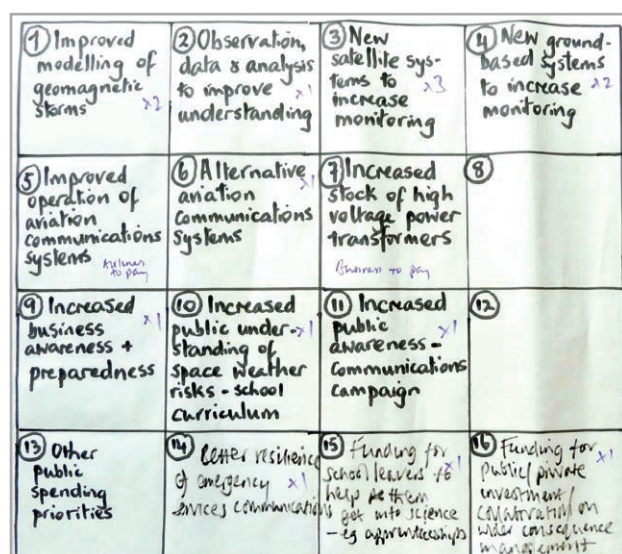 ① Improved
modelling of
geomagnetic
storms x2
② Observation,
data & analysis
to improve
understanding x1
③ New
satellite sys-
tems to x3
increase
monitoring
④ New ground-
based systems
to increase x2
monitoring
⑤ Improved
operation of
aviation
communications
systems
Airlines
to pay
⑥ Alternative
aviation x1
communications
systems
⑦ Increased
stock of high
voltage power
transformers
Business to pay
⑧
⑨ Increased
business x1
awareness +
preparedness
⑩ Increased
public under- x1
standing of
space weather
risks - school
curriculum
⑪ Increased
public x1
awareness -
communications
campaign
⑫
⑬ Other
public
spending
priorities
⑭ Better resilience
of emergency x1
services communications
⑮ Funding for
school leavers to x1
help them
get into science
- eg apprenticeships
⑯ Funding for
public/private x1
investment/
collaboration on
wider consequence
management